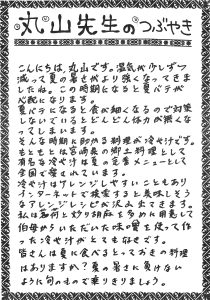 丸山先生のつぶやき
こんにちは、丸山です。湿気が少しずつ
減って夏の暑さがより強くなってきま
したね。この時期になると夏バテが
心配になります。
夏バテになると食が細くなるので対策
しないでいるとどんどん体力が無くな
ってしまいます。
そんな時期に助かる料理が冷や汁です。
もともとは宮崎県の郷土料理として
有名な冷や汁は夏の定番メニューとして
全国で愛されています。
冷や汁はアレンジしやすいこともあり
インターネットで検索すると美味しそう
なアレンジレシピが沢山でてきます。
私は茗荷と炒り胡麻を多めに用意して
伯母からいただいた味噌を使って作
った冷や汁がとても好きです。
皆さんは夏に食べるとっておきの料理
はありますか？夏の暑さに負けない
ように旬のもので乗りきりましょう。